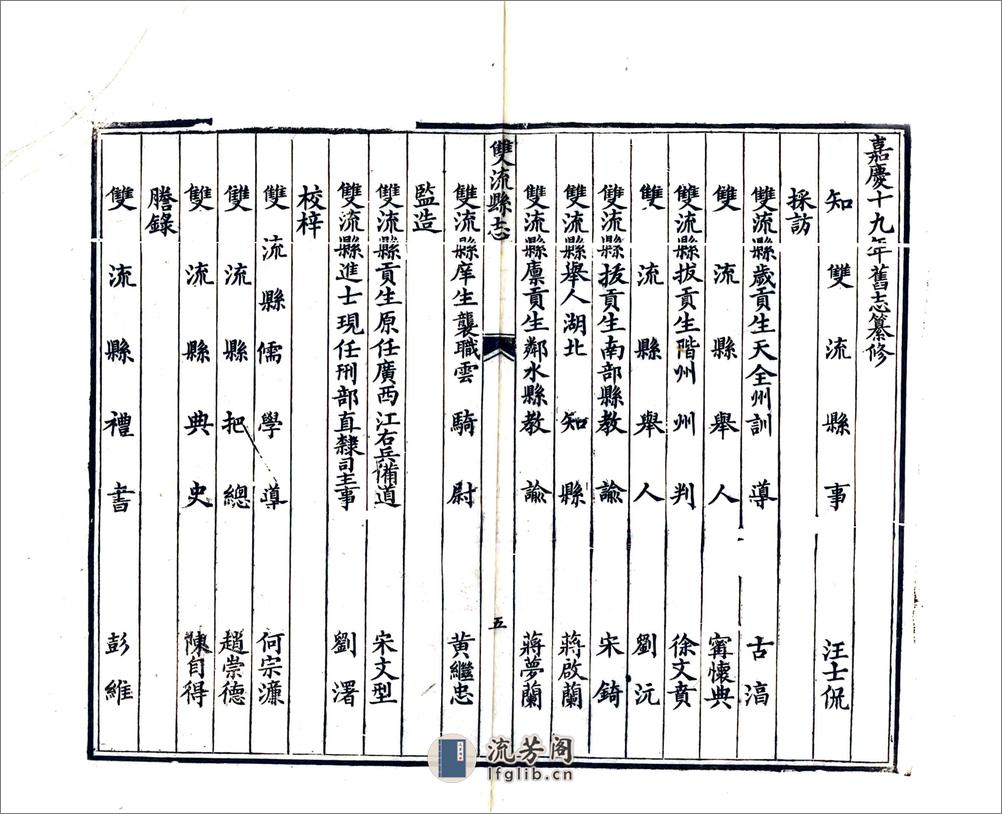 嘉慶十九年舊志纂修
知雙流縣事 汪士侃
採訪
雙流縣歲貢生天全州訓導 古㵆
雙流縣舉人 甯懷典
雙流縣拔貢生階州州判 徐文賁
雙流縣舉人 劉沅
雙流縣拔貢生南部縣教諭 宋錡
雙流縣舉人湖北知縣 蔣啟蘭
雙流縣廩貢生鄰水縣教諭 蔣夢蘭
雙流縣志
五
雙流縣庠生襲職雲騎尉 黃繼忠
監造
雙流縣貢生原任廣西江右兵備道 宋文型
雙流縣進士現任刑部直隸司主事 劉濖
校梓
雙流縣儒學導 何宗濂
雙流縣把總 趙崇德
雙流縣典史 陳自得
謄錄
雙流縣禮書 彭維
流芳阁
lfglib.cn